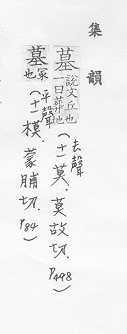 集韻
墓說文丘也一曰葬也
去聲
(十一莫.莫故切.P498)
墓冢也
平聲
(十一模.蒙脯切.P84)